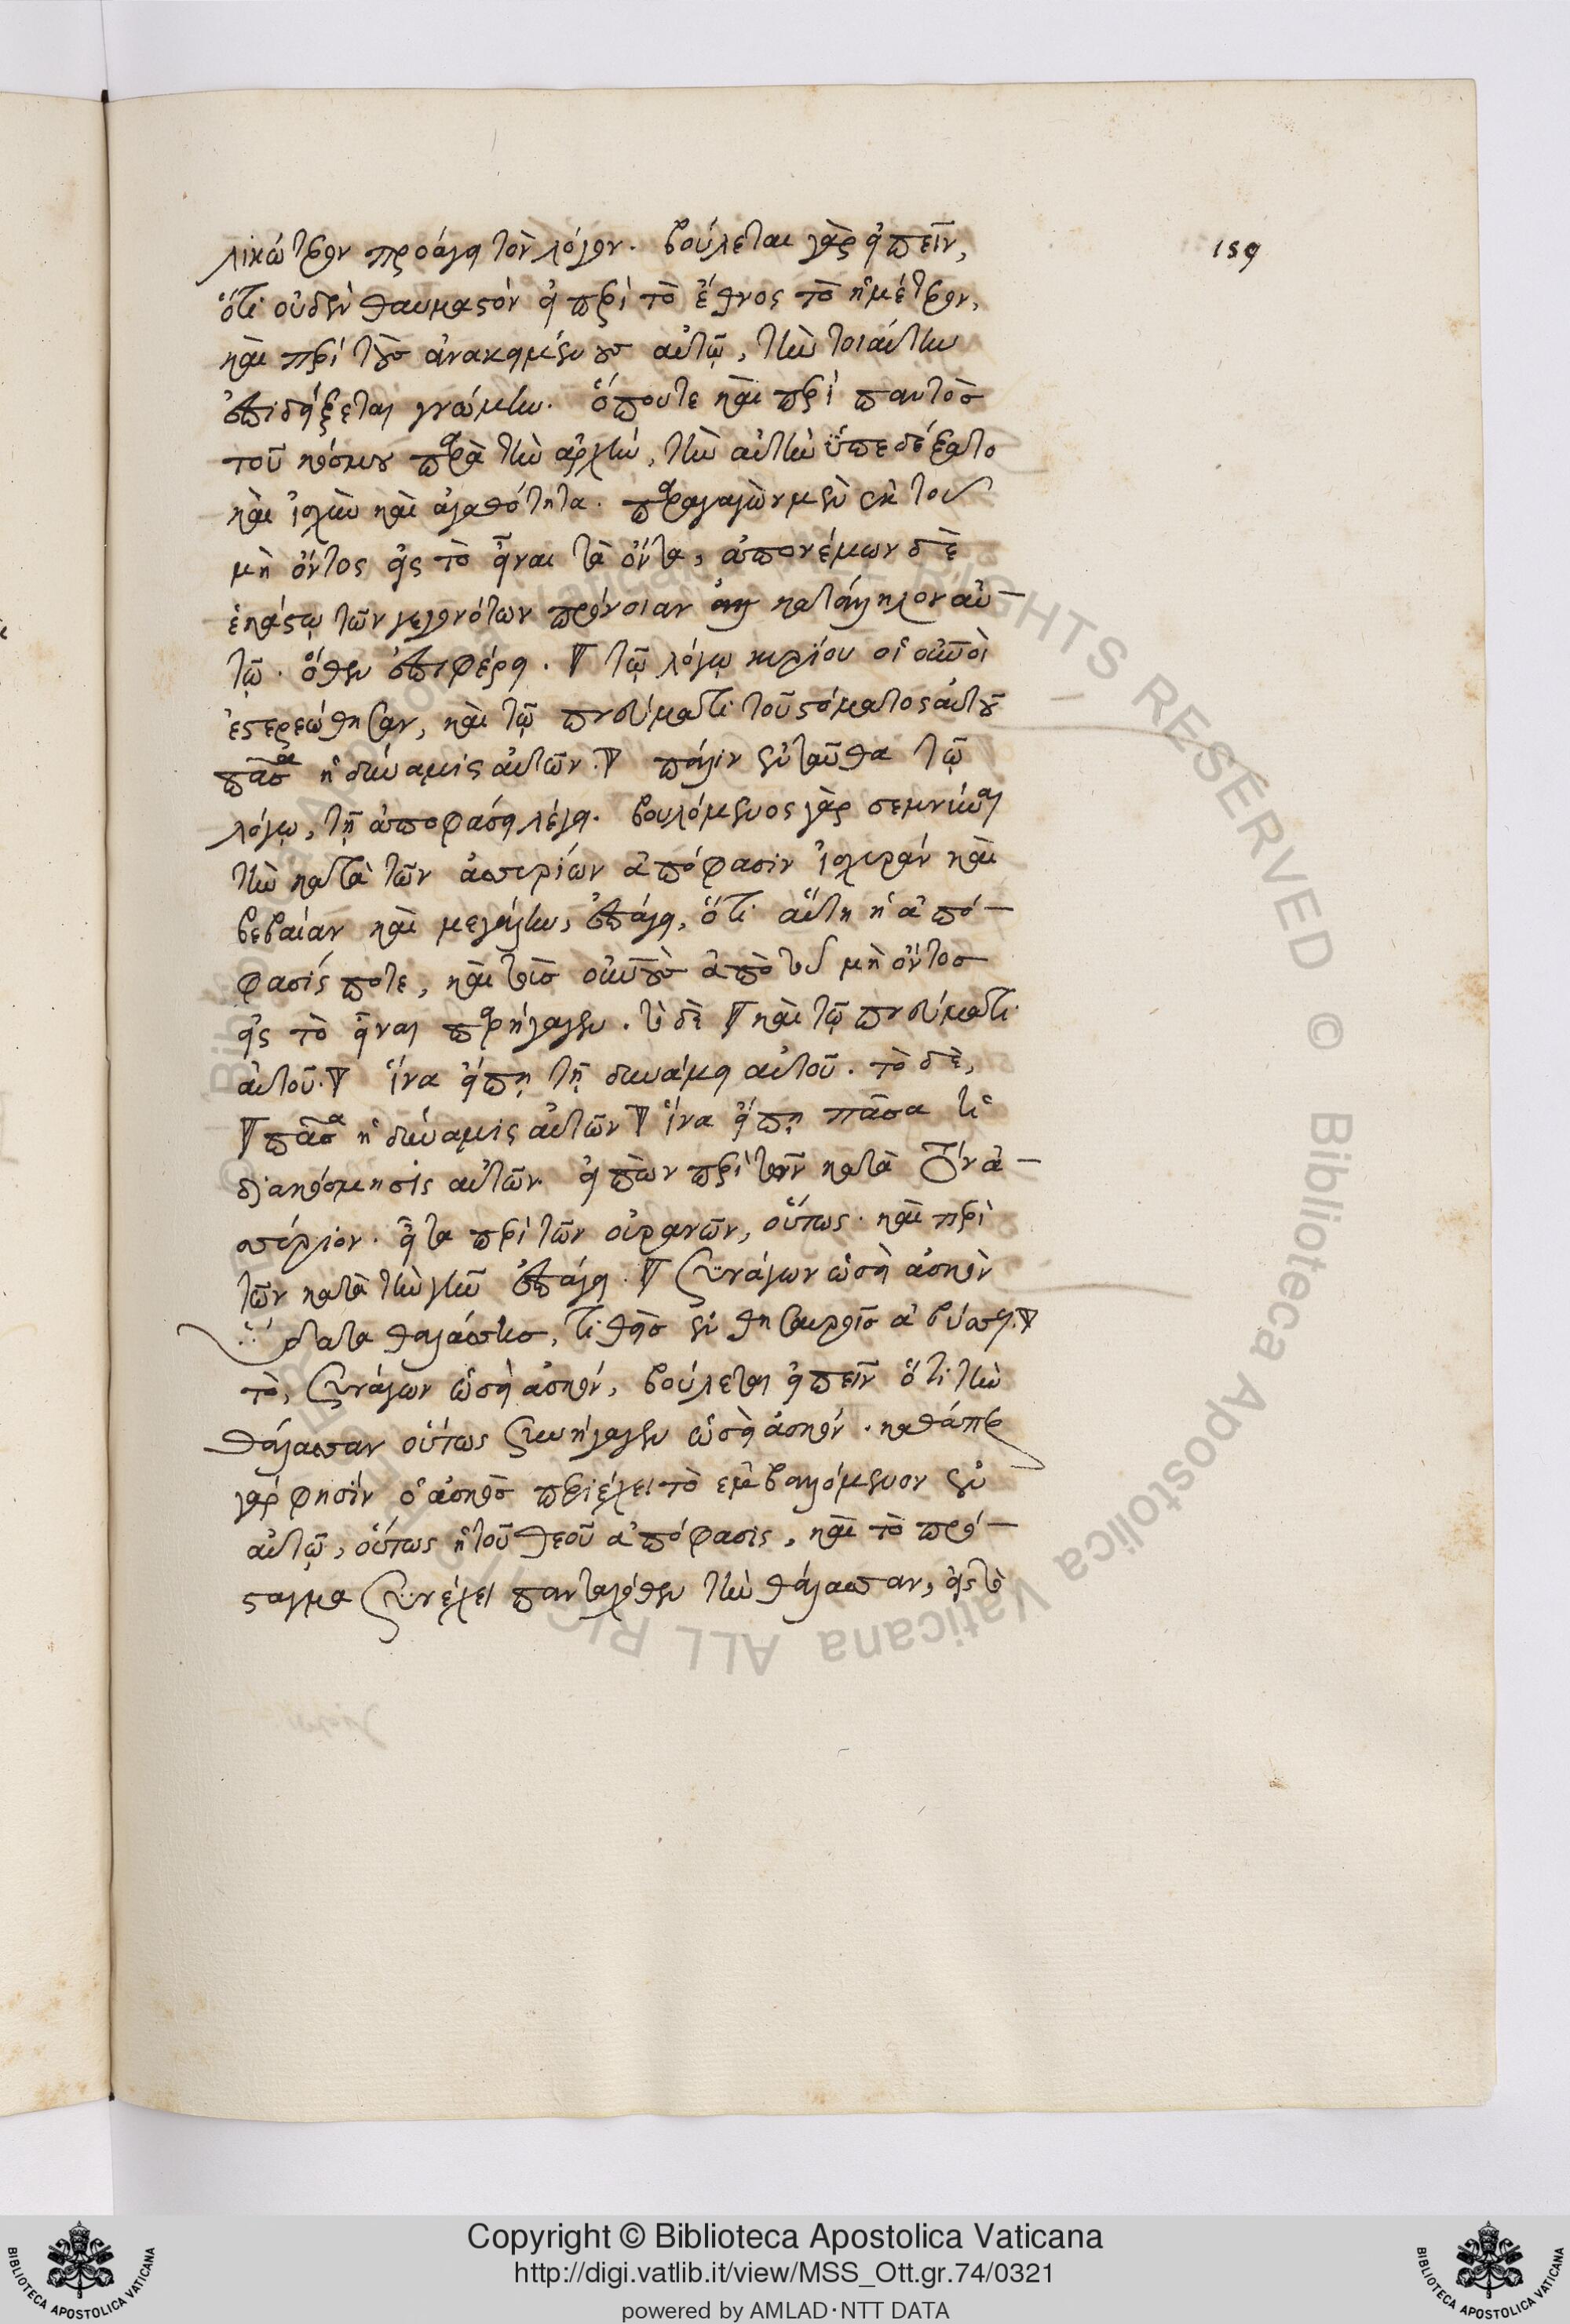 159
λικώτερον προάγει τὸν λόγον. βούλεται γὰρ εἰπεῖν,
ὅτι οὐδὲν θαυμαστὸν εἰ περὶ τὸ ἔθνος τὸ ἡμέτερον,
καὶ περὶ τοὺς ἀνακειμένους αὐτῷ, τὴν τοιαύτην
ἐπιδείξεται γνώμην. ὅπουτε καὶ περὶ παντὸς
τοῦ κόσμου παρὰ τὴν ἀρχὴν, τὴν αὐτὴν ὑπεδέξατο
καὶ ἰσχὺν καὶ ἀγαθότητα. παραγαγὼν μὲν ἐκ τοῦ
μὴ ὄντος εἰς τὸ εἶναι τὰ ὄντα, ἀπονέμων δὲ
ἑκάστῳ τῶν γεγονότων πρόνοιαν κατάλληλον αὐ-
τῷ. ὅθεν ἐπιφέρει. τῷ λόγῳ κυρίου οἱ οὐνοὶ
ἐστερεώθησαν, καὶ τῷ πνεύματι τοῦ στόματος αὐτοῦ
πᾶσα ἡ δύναμις αὐτῶν. πάλιν ἐνταῦθα τῷ
λόγῳ, τῇ ἀποφάσει λέγει. βουλόμενος γὰρ σεμνύναι
τὴν κατὰ τῶν ἀσσυρίων ἀπόφασιν ἰσχυρὰν καὶ
βεβαίαν καὶ μεγάλην, ἐπάγει, ὅτι αὕτη ἡ ἀπό-
φασίς ποτε, καὶ τοὺς οὐνοὺς ἀπὸ τοῦ μὴ ὄντος
εἰς τὸ εἶναι παρήγαγεν. τὸ δὲ καὶ τῷ πνεύματι
αὐτοῦ. ἵνα εἴπῃ τῇ δυνάμει αὐτοῦ. τὸ δὲ,
πᾶσα ἡ δύναμις αὐτῶν ἵνα εἴπῃ πᾶσα ἡ
διακόσμησις αὐτῶν. εἰπὼν περὶ τῶν κατὰ τὸν ἀ-
σσύριον. εἶτα περὶ τῶν οὐρανῶν, οὕτως καὶ περὶ
τῶν κατὰ τὴν γῆν ἐπάγει. Συνάγων ὡσεὶ ἀσκὸν
ὕδατα θαλάσσης, τιθεὶς ἐν θησαυροῖς ἀβύσσους.
τὸ, συνάγων ὡσεὶ ἀσκόν, βούλεται εἰπεῖν ὅτι τὴν
θάλασσαν οὕτως συνήγαγεν ὡσεὶ ἀσκόν. καθάπερ
γάρ φησίν ὁ ἀσκὸς περιέχει τὸ ἐμβαλλόμενον ἐν
αὐτῷ, οὕτως ἡ τοῦ θεοῦ ἀπόφασις, καὶ τὸ πρό-
σταγμα συνέχει πανταχόθεν τὴν θάλασσαν, εἰς τὸ
Copyright © Biblioteca Apostolica Vaticana
http://digi.vatlib.it/view/MSS_Ott.gr.74/0321
powered by AMLAD·NTT DATA
BIBLIOTECA APOSTOLICA VATICANA
BIBLIOTECA APOSTOLICA VATICANA